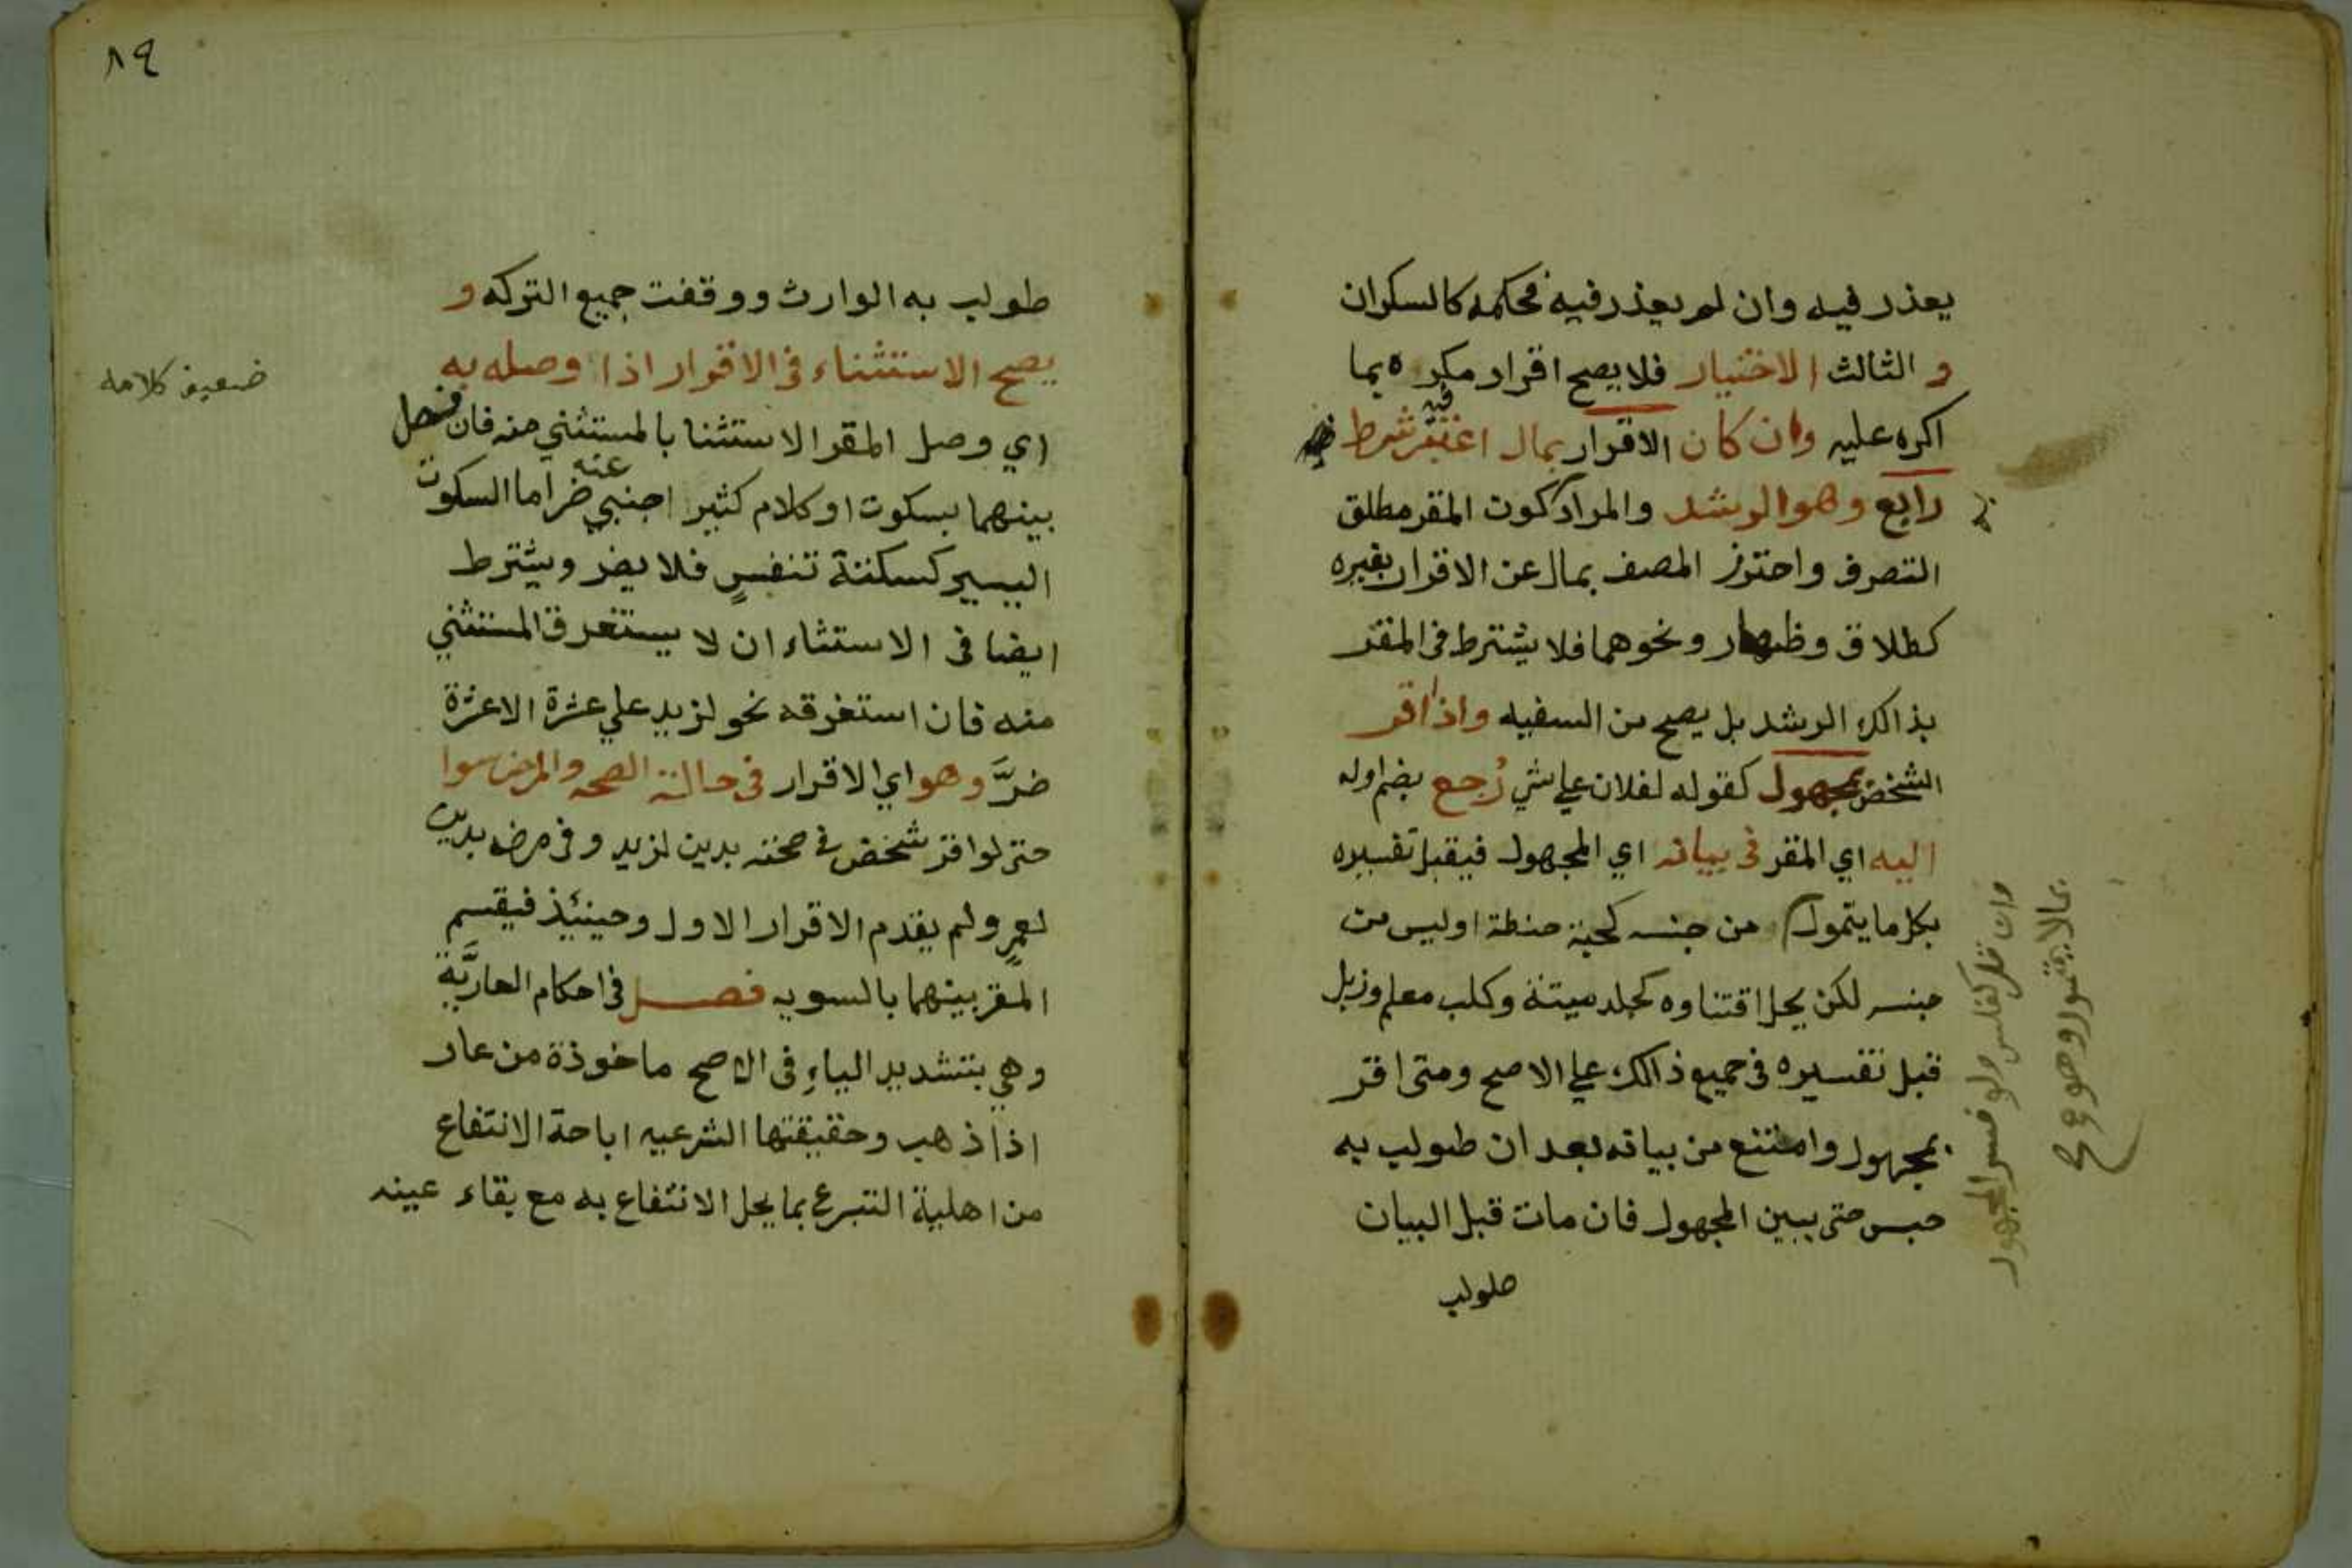 يعذر فيه وان لم يعذر فيه فحكمه كالسكران
و الثالث الاختيار فلا يصح اقرار مكره بما
اكره عليه وان كان الاقرار بمال اعتبر فيه شرط
رابع وهو الرشد والمراد كون المقر مطلق
التصرف واحترز المصنف بمال عن الاقرار بغيره
كطلاق وظهار ونحوهما فلا يشترط في المقر
بذالك الرشد بل يصح من السفيه واذا اقر
الشخص بمجهول كقوله لفلان علي شي رُجع بضم اوله
اليه اي المقر في بيانه اي المجهول فيقبل تفسيره
بكل ما يتمول من جنسه كحبة حنطة او ليس من
جنسه لكن يحل اقتناوه كجلد ميتة وكلب معلم وزبل
قبل تفسيره في جميع ذالك علي الاصح ومتى اقر
بمجهول وامتنع من بيانه بعد ان طولب به
حبس حتى يبين المجهول فان مات قبل البيان
طولب
ولو فسر المجهول
بما لا يتمول
٨٤
طولب به الوارث ووقفت جميع التركه و
يصح الاستثناء في الاقرار اذا وصله به
اي وصل المقر الاستثنا بالمستثني منه فان فصل
بينهما بسكوت او كلام كثير اجنبي عنه ضر اما السكوت
اليسير كسكتة تنفسٍ فلا يضر ويشترط
ايضا في الاستثاء ان لا يستغرق المستثني
منه فان استغرقه نحو لزيد علي عشرة الا عشرة
ضرَّ وهو اي الاقرار في حالة الصحه والمرض سوا
حتى لو اقر شخص في صحته بدين لزيد وفي مرضه بدين
لعمرٍو لم يقدم الاقرار الاول وحينئذ فيقسم
المقر بينهما بالسويه فصل في احكام العاريَّة
وهي بتشديد الياءِ في الاصح ماخوذة من عار
اذا ذهب وحقيقتها الشرعيه اباحة الانتفاع
من اهلية التبرع بما يحل الانتفاع به مع بقاء عينه
ضعيف كلامه